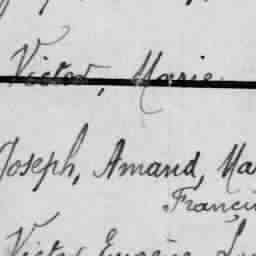 Victor, Marie
Joseph, Amand, Ma
Franci
Victor Eugène